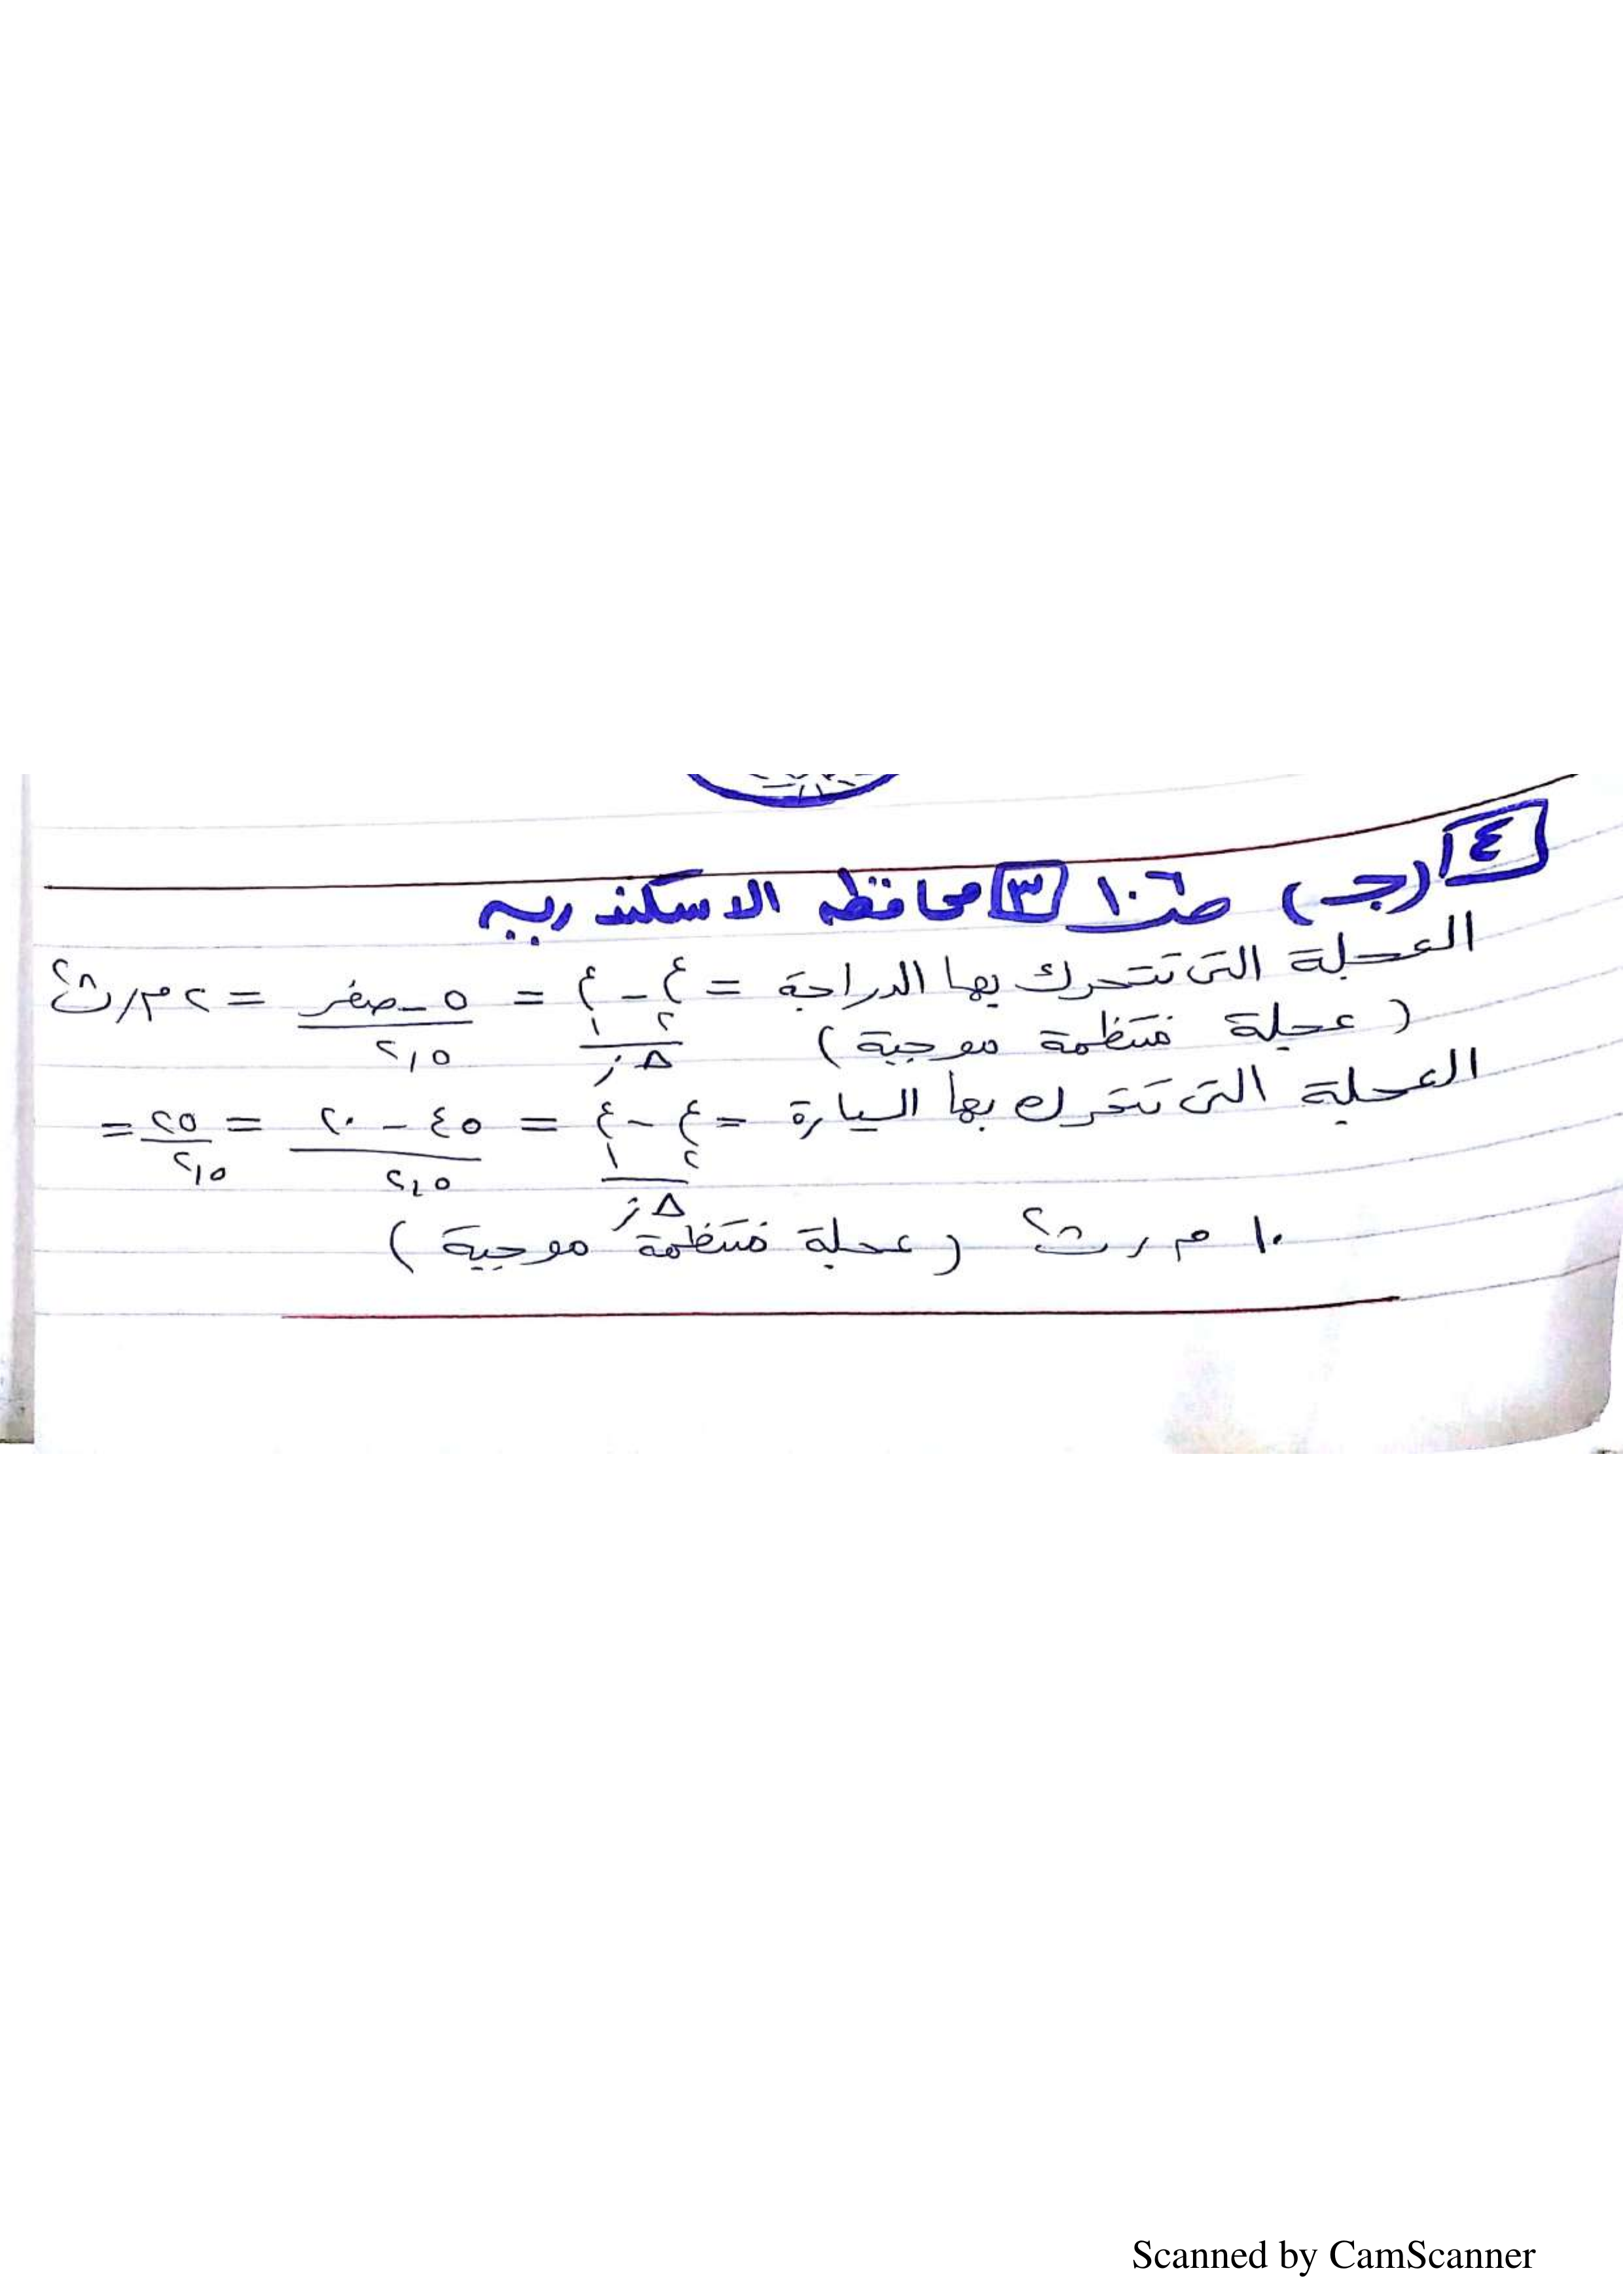 ٤ (جـ) صـ ١٠٦ ٣ محافظه الاسكندريه
العجلة التى تتحرك بها الدراجة = ع٢ - ع١ / Δز = ٥ - صفر / ٢,٥ = ٢ م/ث٢
(عجلة منتظمة موجبة)
العجلة التى تتحرك بها السيارة = ع٢ - ع١ / Δز = ٤٥ - ٢٠ / ٢,٥ = ٢٥ / ٢,٥ =
١٠ م/ث٢ (عجلة منتظمة موجبة)
Scanned by CamScanner